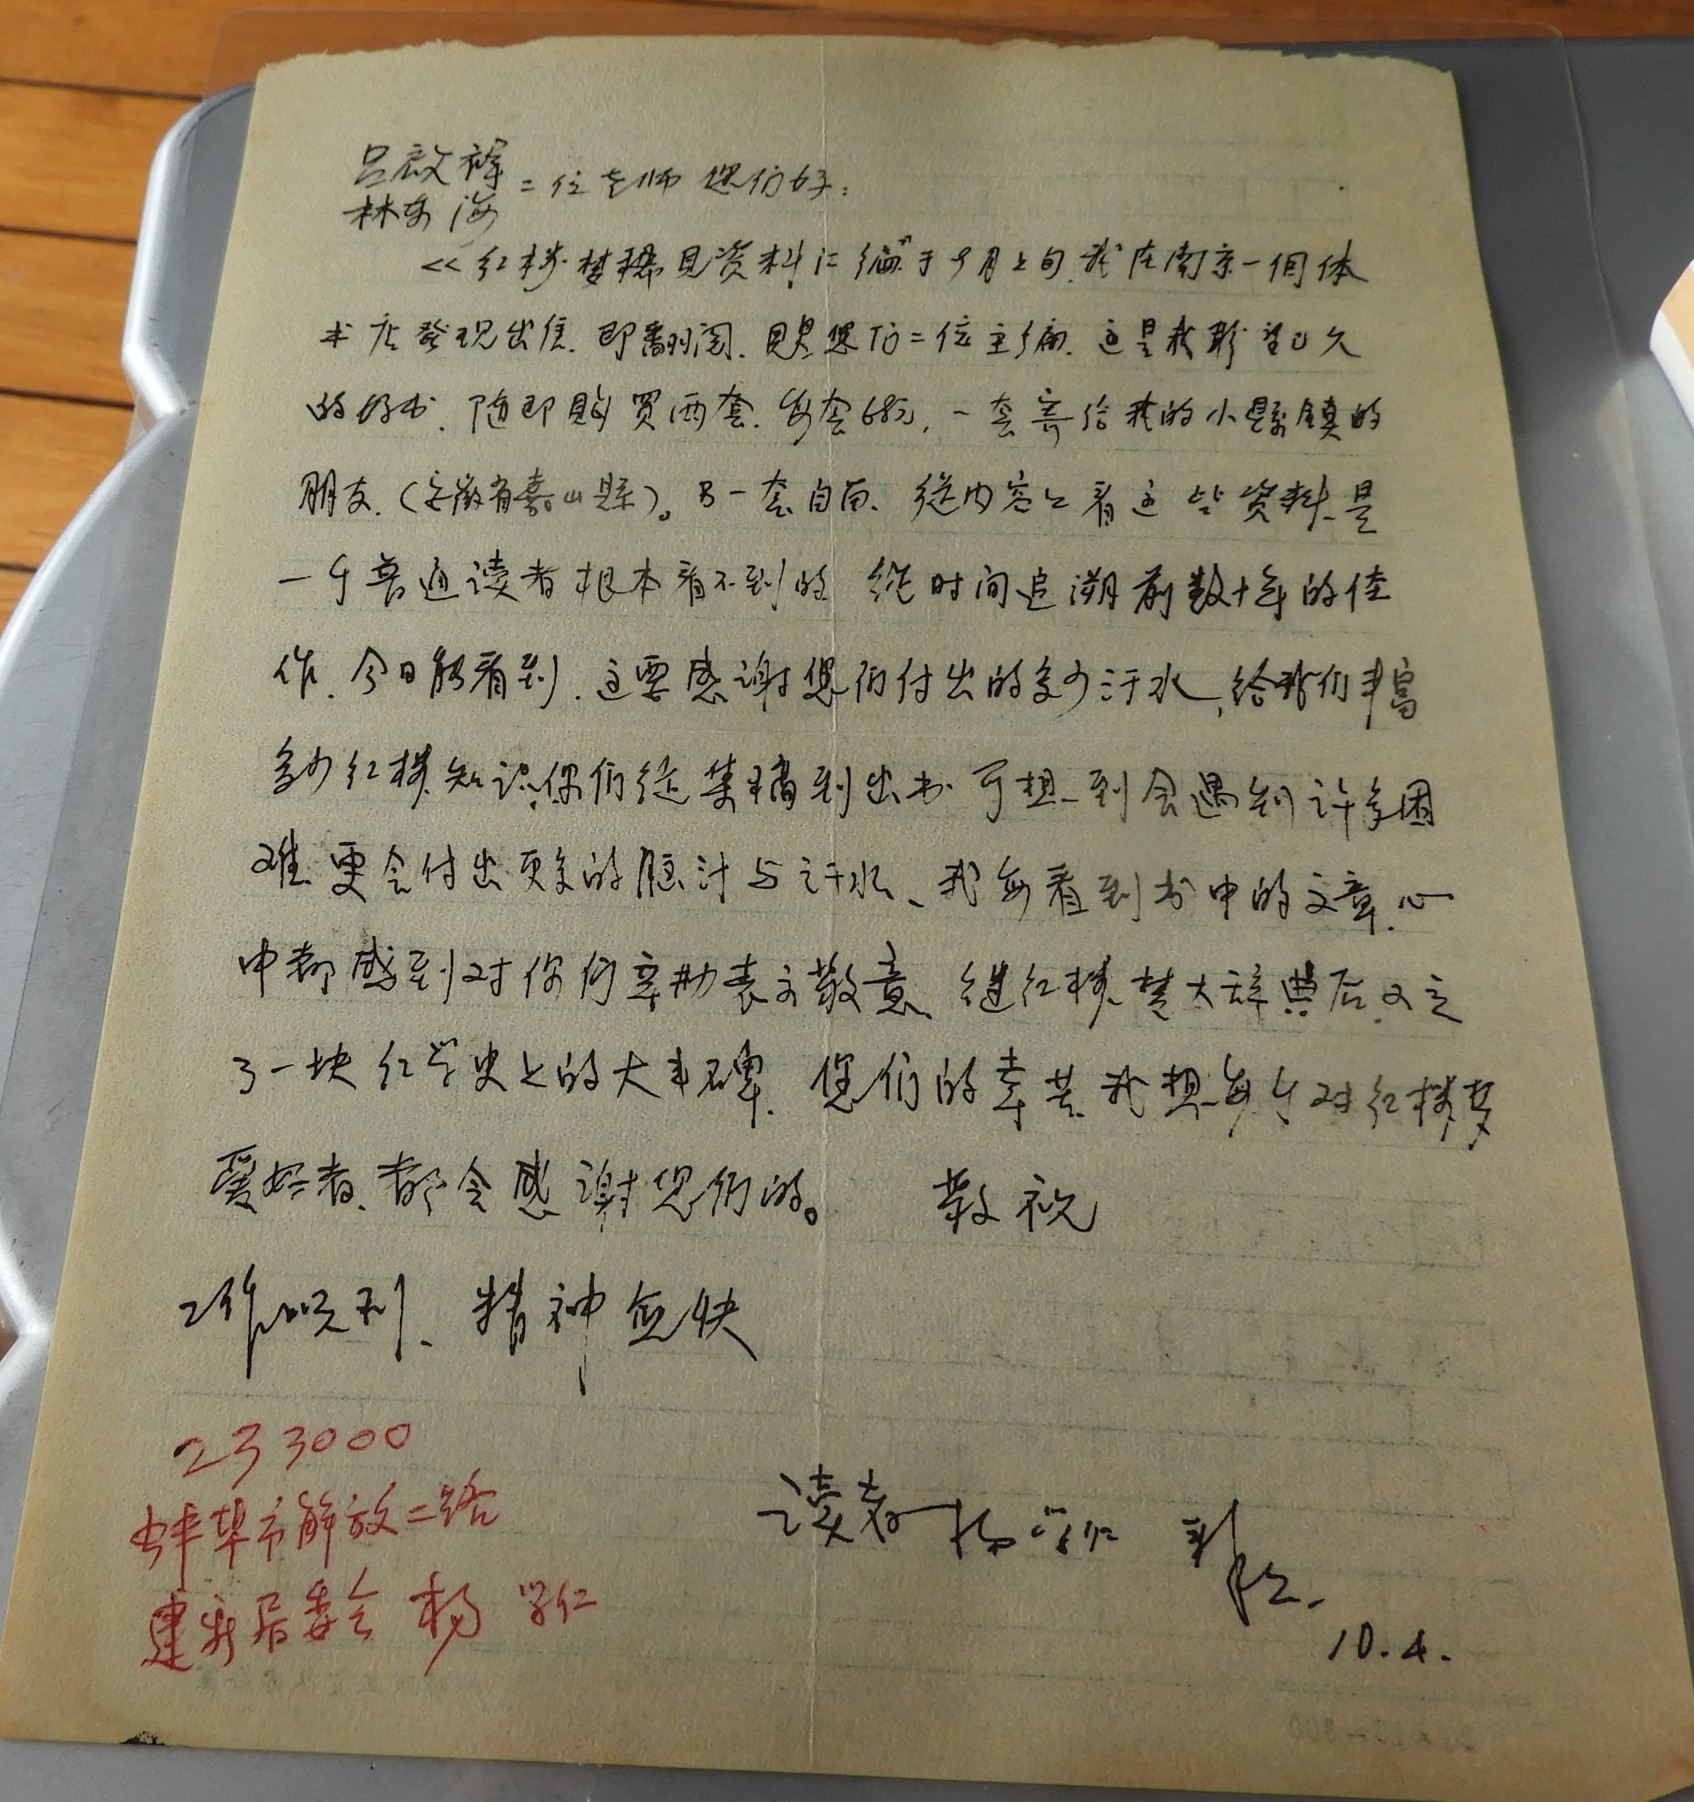 吕启祥
林东海 二位老师 您们好：
《红楼梦稀见资料汇编"于9月上旬.我在南京一個体
书店發现出售.即翻阅.见是您们二位主编.这是我盼望已久
的好书.随即购买两套.每套68元,一套寄给我的小縣鎮的
朋友.(安徽省嘉山縣)。另一套自留、從内容上看这些资料是
一个普通读者根本看不到的 從时间追溯前数十年的佳
作.今日能看到.这要感谢您们付出的多少汗水,给我们丰富
多少红楼知识,你们從集稿到出书可想到会遇到许多困
难更会付出更多的脑汁与汗水、我每看到书中的文章.心
中都感到对你们辛勤表示敬意、继红楼梦大辞典后又立
了一块红学史上的大丰碑.您们的辛苦我想每个对红楼梦
爱好者、都会感谢您们的。 敬祝
工作顺利、精神愉快
读者 杨学仁
10.4.
233000
蚌埠市解放二路
建新居委会 杨学仁